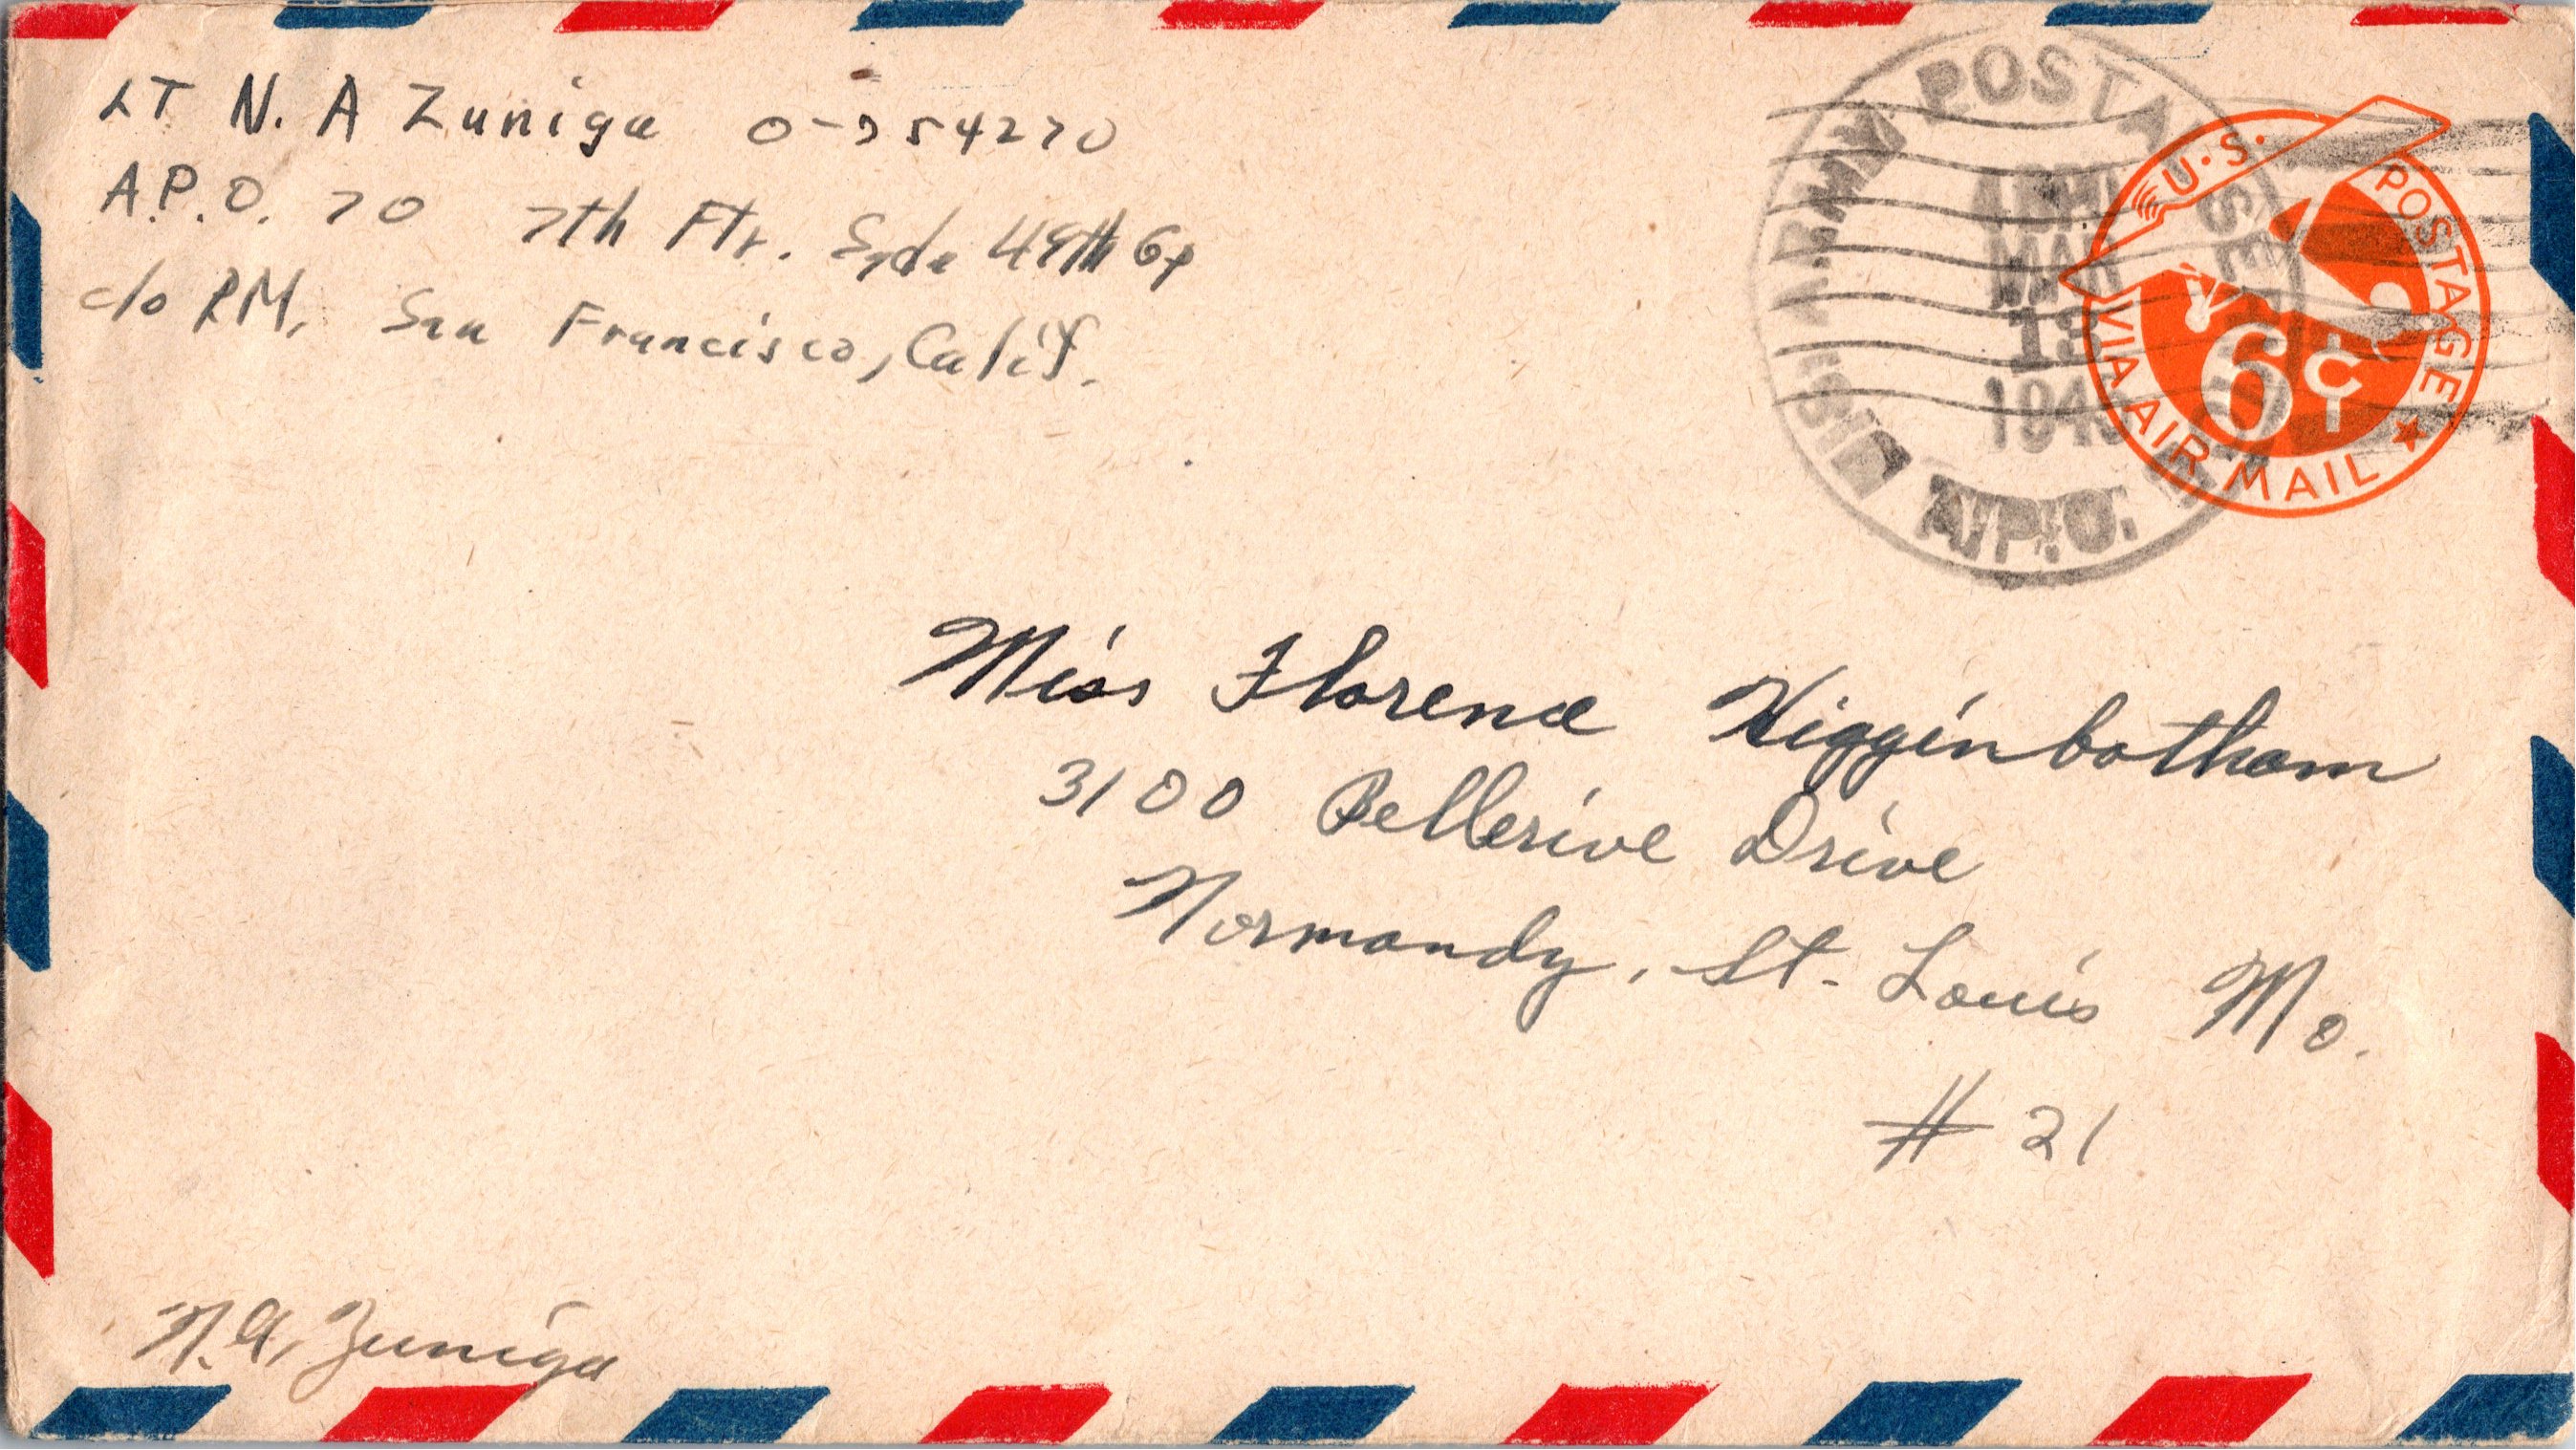 LT N. A Zuniga O-754270
A.P.O. 70 7th Ftr. Sqdn 49th Gp
c/o PM, San Francisco, Calif.
U.S. ARMY POSTAL SERVICE
MAR
13
194
A.P.O.
U.S. POSTAGE
6¢
VIA AIR MAIL
Miss Florence Higginbotham
3100 Bellerive Drive
Normandy, St. Louis Mo.
# 21
N.A. Zuniga